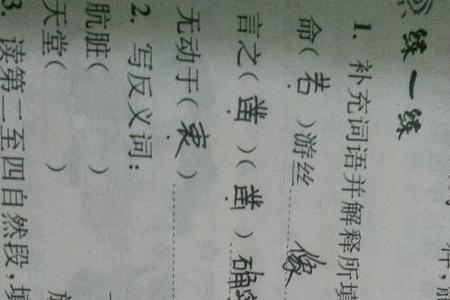 练一练
1. 补充词语并解释所填
命(若)游丝 像
言之(凿)(凿) 确
无动于(衷)
2. 写反义词:
肮脏( )
天堂( )
3. 读第二至四自然段,填